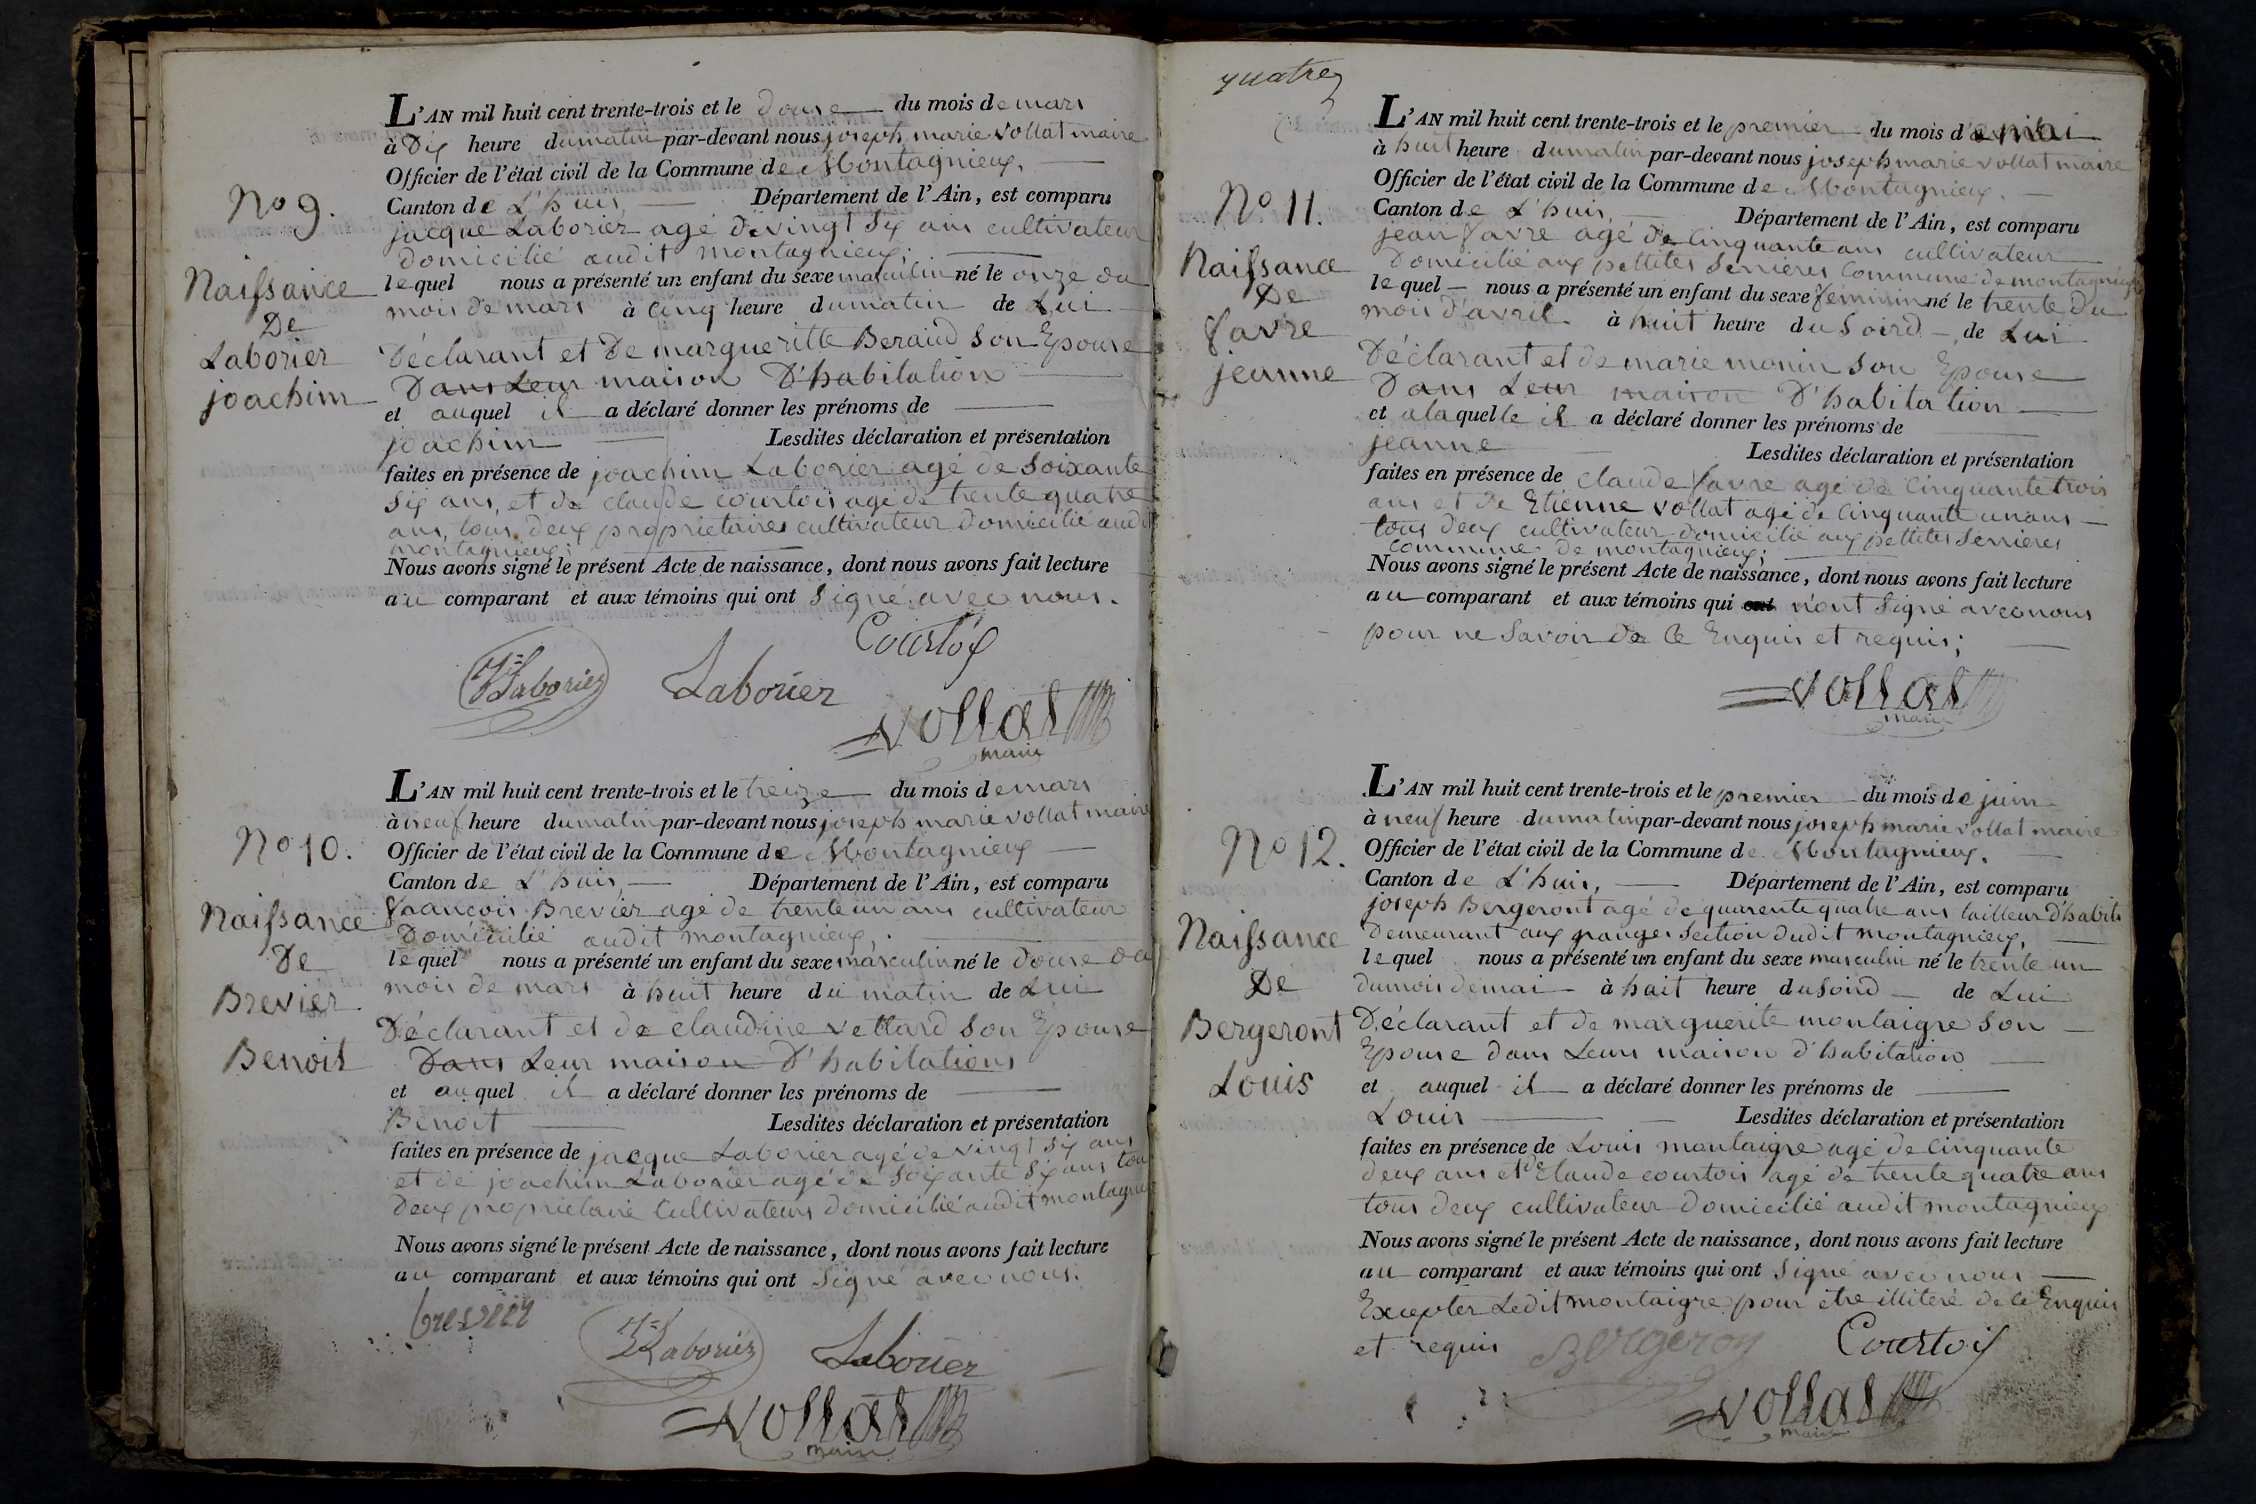 No 9.
Naissance
De
Laborier
joachim
L'AN mil huit cent trente-trois et le douse du mois de mars
à Dix heure du matin par-devant nous joseph marie vollat maire
Officier de l'état civil de la Commune de Montagnieux,
Canton de L'huis, Département de l'Ain, est comparu
jacque Laborier agé de vingt six ans cultivateur
domicilié audit montagnieux;
lequel nous a présenté un enfant du sexe masculin né le onze du
mois de mars à cinq heure du matin de Lui
Déclarant et De margueritte Beraud son Epouse
Dans Leur maison D'habitation
et auquel il a déclaré donner les prénoms de
joachim Lesdites déclaration et présentation
faites en présence de joachim Laborier agé de soixante
six ans, et de claude courtois agé de trente quatre
ans, tous deux proprietaires cultivateur domicilié audit
montagnieux;
Nous avons signé le présent Acte de naissance, dont nous avons fait lecture
au comparant et aux témoins qui ont signé avec nous.
Courtois
Laborier Laborier
vollat
maire
No 10.
Naissance
De
Brevier
Benoit
L'AN mil huit cent trente-trois et le treize du mois de mars
à neuf heure du matin par-devant nous joseph marie vollat maire
Officier de l'état civil de la Commune de Montagnieux
Canton de L'huis, Département de l'Ain, est comparu
françois Brevier agé de trente un ans cultivateur
Domicilié audit montagnieux,
lequel nous a présenté un enfant du sexe masculin né le douse du
mois de mars à huit heure du matin de Lui
Déclarant et de claudine vettard son Epouse
Dans Leur maison D'habitations
et auquel il a déclaré donner les prénoms de
Benoit Lesdites déclaration et présentation
faites en présence de jacque Laborier agé de vingt six ans
et de joachim Laborier agé de soixante six ans tous
deux proprietaire Cultivateurs domicilié audit montagnieux
Nous avons signé le présent Acte de naissance, dont nous avons fait lecture
au comparant et aux témoins qui ont signé avec nous.
brevier
Laborier Laborier
vollat
maire
quatre
No 11.
Naissance
De
favre
jeanne
L'AN mil huit cent trente-trois et le premier du mois de mai
à huit heure du matin par-devant nous joseph marie vollat maire
Officier de l'état civil de la Commune de Montagnieux.
Canton de L'huis, Département de l'Ain, est comparu
jean favre agé de cinquante ans cultivateur
Domicilié aux pettites Serrieres Commune de montagnieux
lequel nous a présenté un enfant du sexe féminin né le trente du
mois d'avril à huit heure du soird de Lui
Déclarant et de marie monin son Epouse
Dans Leur maison D'habitation
et alaquelle il a déclaré donner les prénoms de
jeanne Lesdites déclaration et présentation
faites en présence de claude favre agé de cinquante trois
ans et de Etienne vollat agé de cinquante un ans
tous deux cultivateur domicilié aux pettites serrieres
commune de montagnieux;
Nous avons signé le présent Acte de naissance, dont nous avons fait lecture
au comparant et aux témoins qui ont n'ont signé avec nous
pour ne savoir de ce Enquis et requis;
vollat
maire
No 12.
Naissance
De
Bergeront
Louis
L'AN mil huit cent trente-trois et le premier du mois de juin
à neuf heure du matin par-devant nous joseph marie vollat maire
Officier de l'état civil de la Commune de Montagnieux.
Canton de L'huis, Département de l'Ain, est comparu
joseph Bergeront agé de quarente quatre ans tailleur D'habits
Demeurant aux granges section dudit montagnieux,
lequel nous a présenté un enfant du sexe masculin né le trente un
du mois de mai à huit heure du soird de Lui
Déclarant et de marguerite montaigre son
Epouse dans Leurs maison d'habitation
et auquel il a déclaré donner les prénoms de
Louis Lesdites déclaration et présentation
faites en présence de Louis montaigre agé de cinquante
deux ans et de Claude courtois agé de trente quatre ans
tous deux cultivateur domicilié audit montagnieux
Nous avons signé le présent Acte de naissance, dont nous avons fait lecture
au comparant et aux témoins qui ont signé avec nous
Excepter Ledit montaigre pour etre illiteré de ce Enquis
et requis Bergeron Courtois
vollat
maire